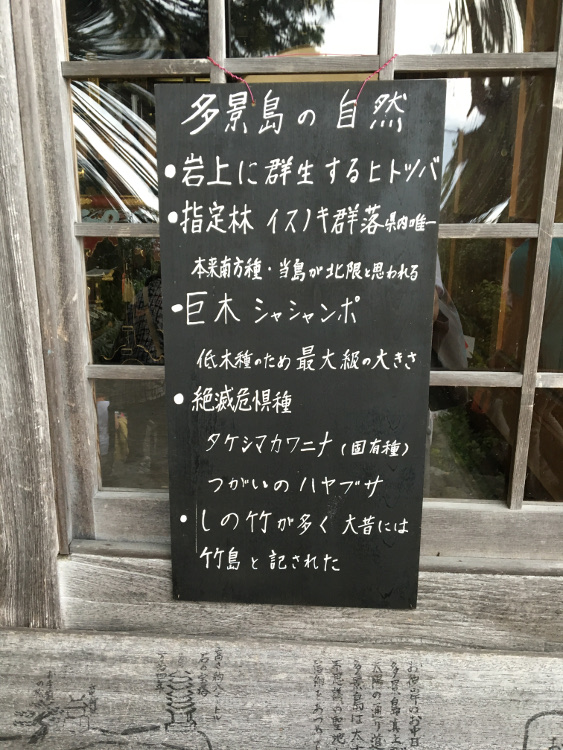 多景島の自然
・岩上に群生するヒトツバ
・指定林 イスノキ群落県内唯一
本来南方種・当島が北限と思われる
・巨木 シャシャンポ
低木種のため最大級の大きさ
・絶滅危惧種
タケシマカワニナ(固有種)
つがいのハヤブサ
・しの竹が多く 大昔には
竹島と記された